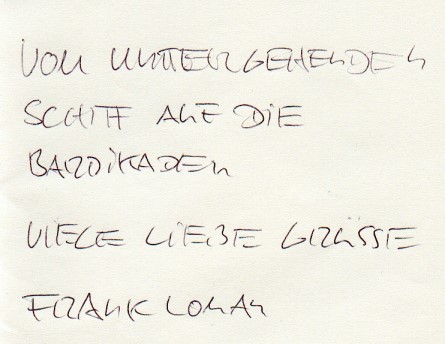 VOM UNTERGEHENDEN
SCHIFF AUF DIE
BARRIKADEN
VIELE LIEBE GRÜSSE
FRANK